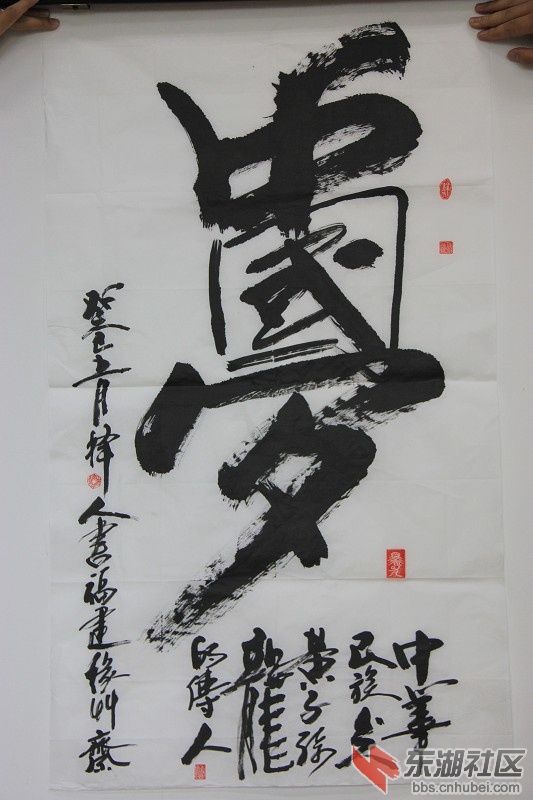 中國夢
中華
民族炎
黄子孫
龍
的傳人
癸巳月人書福建緣艸齋
东湖社区
bbs.cnhubei.com